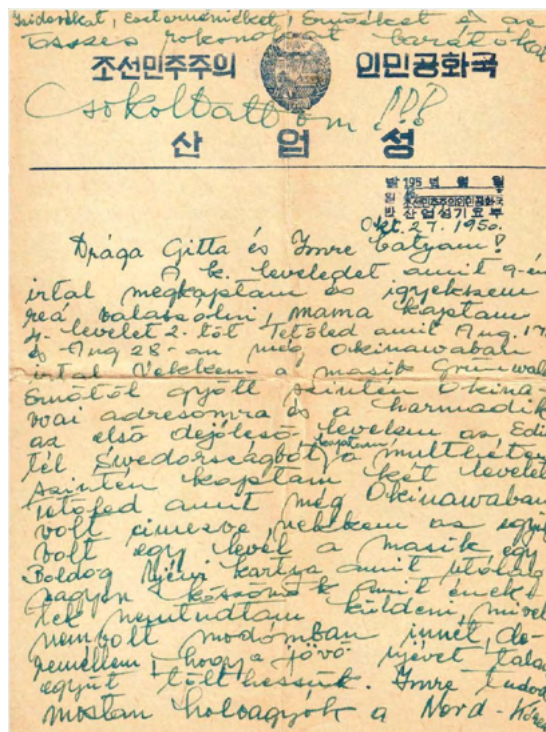 Izidorékat, Eszterméniéket, Ernőéket és az
összes rokonokat barátokat
조선민주주의 인민공화국
Csokoltatom !!!
산업성
발 195 년 월 일
조선민주주의인민공화국
산업성기요부
Okt. 27. 1950.
Drága Gitta és Imre batyam!
A k. leveledet amit 9-én
irtal megkaptam és igyekszem
reá valaszolni, mama kaptam
4. levelet 2. töt Tetőled amit Aug. 17
és Aug 28-an még Okinawaban
irtal Nekkem a masik Grünwald
Ernőtől gyött szintén Okina-
wai adresomra és a harmadik
az első levelem az Edi
tél Swedországból, kaptam a multheten
szintén kaptam két levelet
Tetőled amit még Okinawaban
volt cimezve nekkem az egyik
volt egy levél a masik egy
Boldog Ujévi kartya amit utólag
nagyon köszönök amit énnek-
tek nemtudtam küldeni, mivel
nembolt modómban innét, de
remellem, hogy a jövő ujévet talan
együt tölthessük. Imre tudod
mostan holvagyok a Nord-Korea